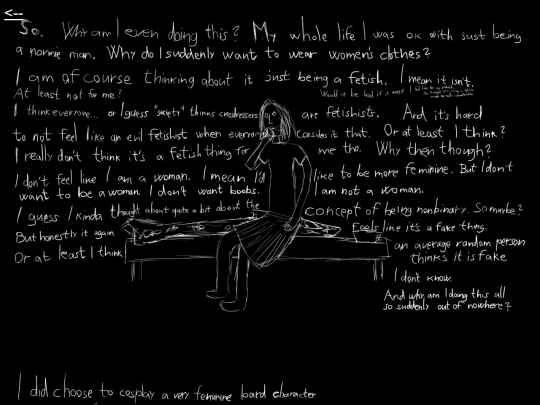 <--
So. Why am I even doing this? My whole life I was ok with just being
a normie man. Why do I suddenly want to wear women's clothes?
I am of course thinking about it just being a fetish. I mean it isn't.
At least not for me? Would it be bad if it was?
I think everyone... or I guess "society" thinks crossdressers are fetishists. And it's hard
to not feel like an evil fetishist when everyone consider it that. Or at least I think?
I really don't think it's a fetish thing for me tho. Why then though?
I don't feel like I am a woman. I mean I'd like to be more feminine. But I don't
want to be a woman. I don't want boobs. I am not a woman.
I guess I kinda thought about quite a bit about the concept of being nonbinary. So maybe?
But honestly it again Feels like it's a fake thing.
Or at least I think an average random person
thinks it is fake
I don't know.
And why am I doing this all
so suddenly out of nowhere?
I did choose to cosplay a very feminine board character